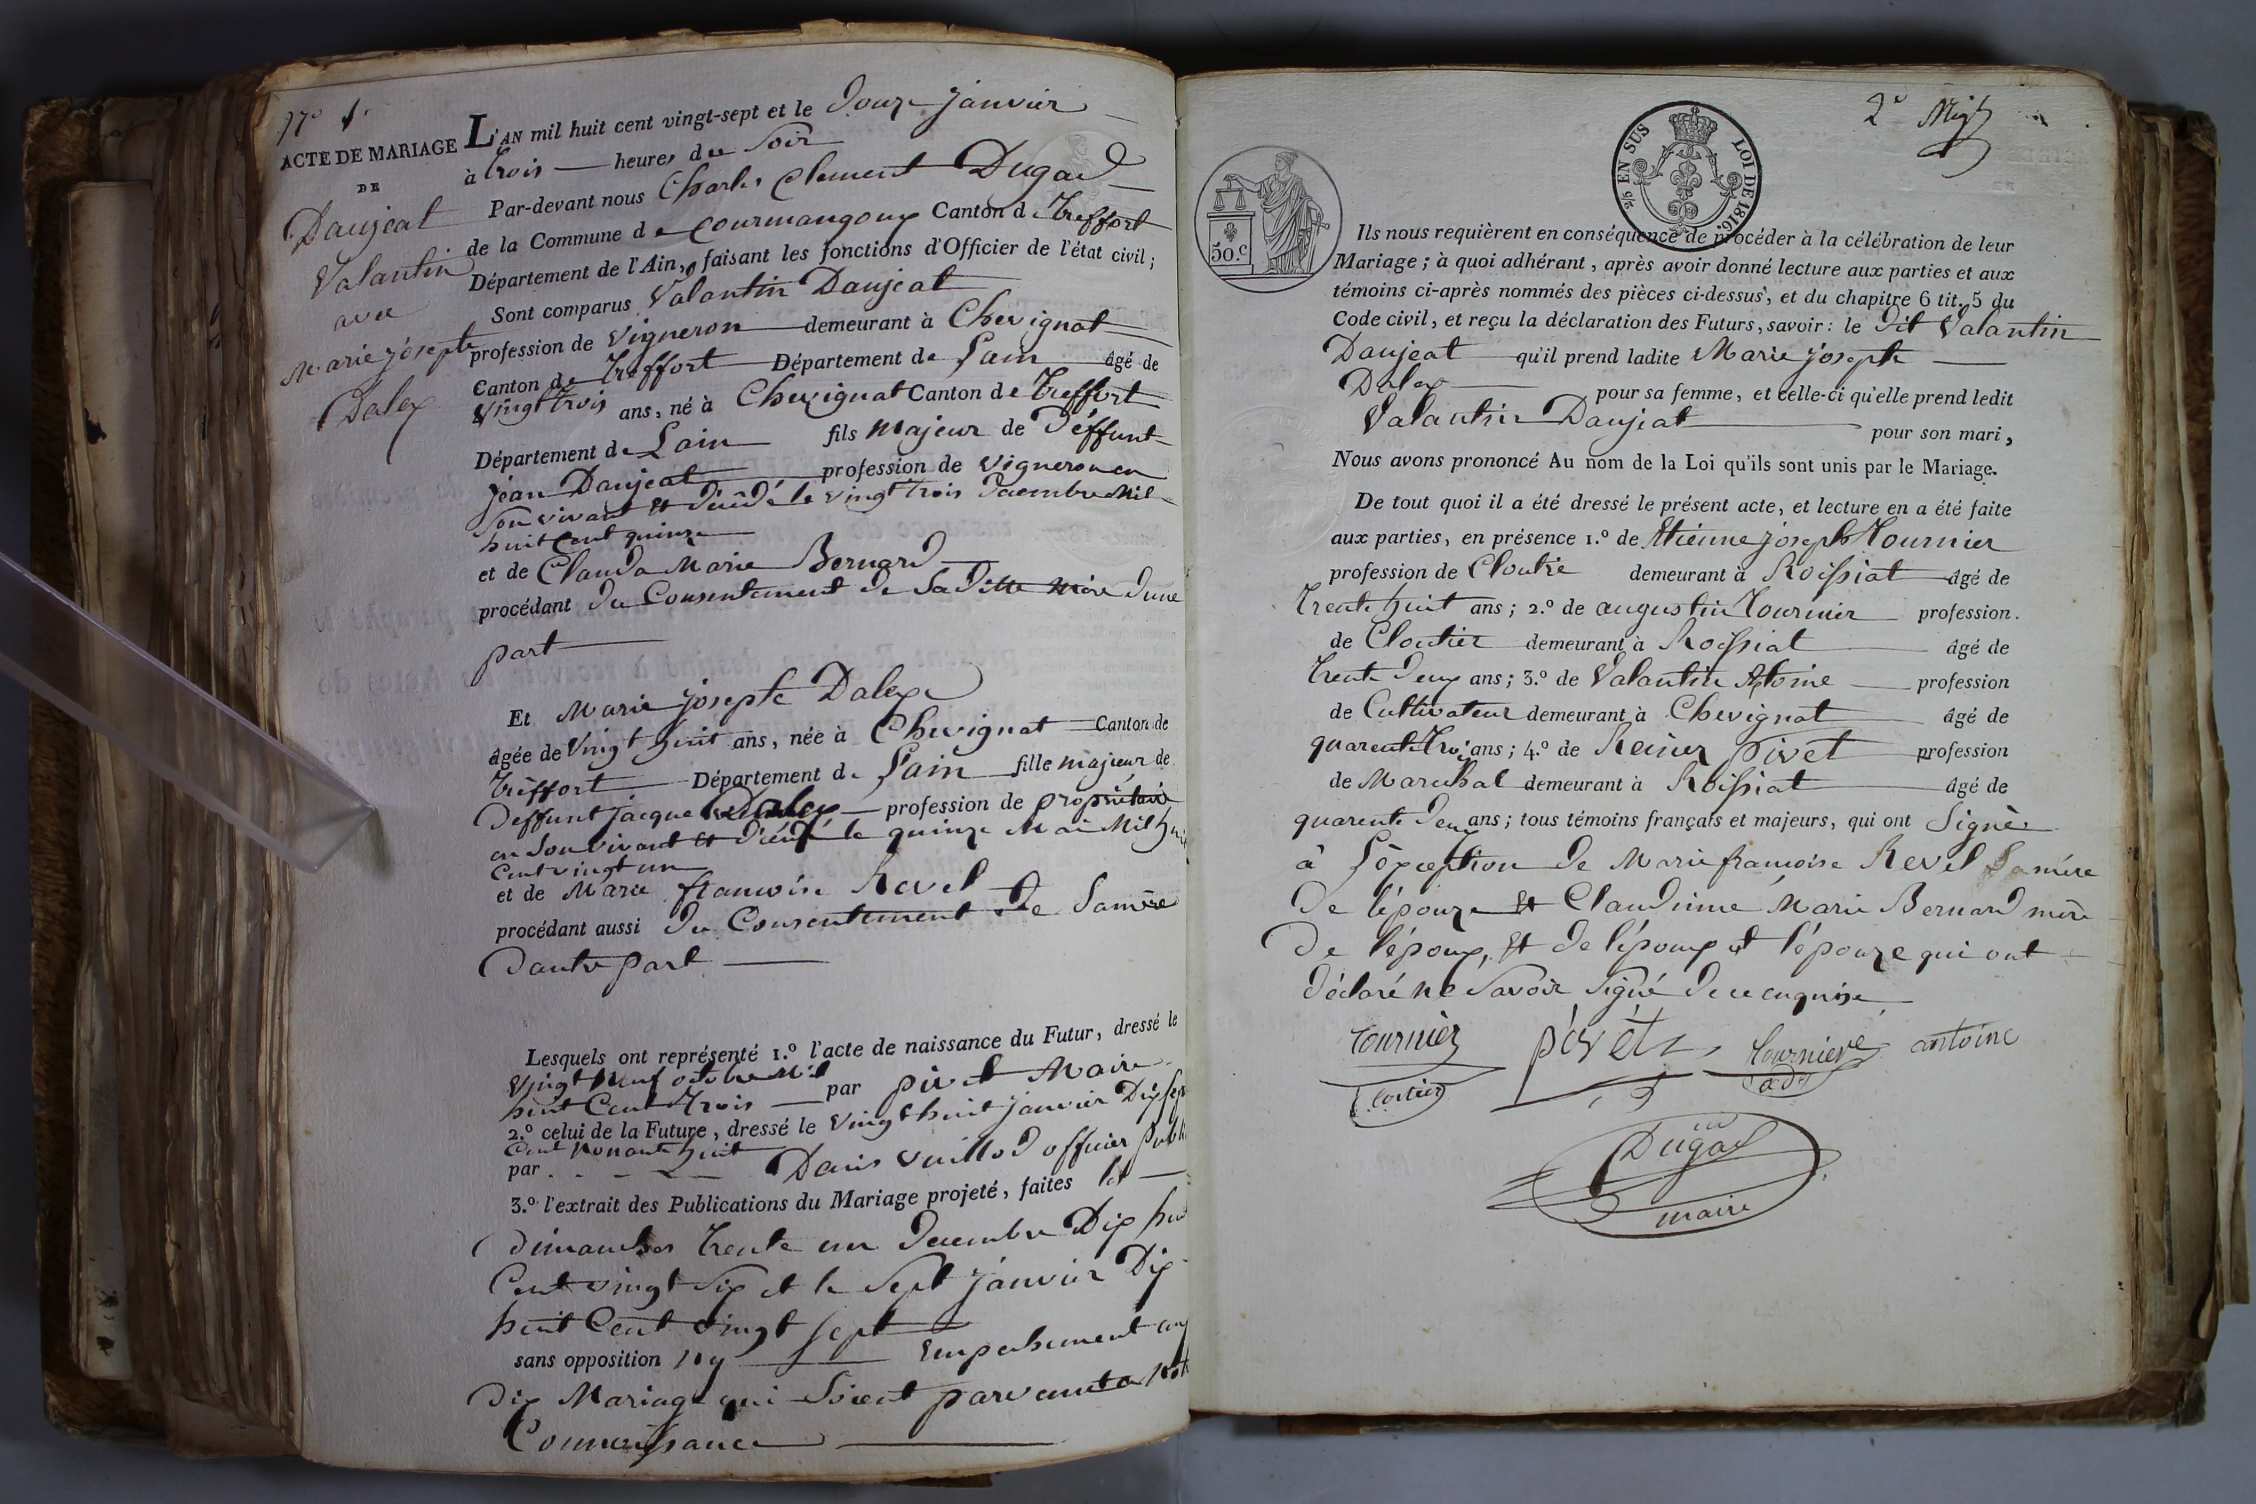 N.o 1.
ACTE DE MARIAGE
DE
Daujeat
Valantin
avec
Marie josephe
Dalex
L'AN mil huit cent vingt-sept et le Douze janvier
à trois heures du Soir
Par-devant nous Charles Clement Dugad
de la Commune de Courmangoux Canton de Treffort
Département de l'Ain, faisant les fonctions d'Officier de l'état civil;
Sont comparus Valantin Daujeat
profession de vigneron demeurant à Chevignat
Canton de Treffort Département de Lain âgé de
vingt trois ans, né à Chevignat Canton de Treffort
Département de Lain fils majeur de Déffunt
jean Daujeat profession de vigneron en
son vivant et décédé le vingt trois decembre Mil
huit Cent quinze
et de Clauda Marie Bernard
procédant du Consentement de Sa ditte Mère dune
part
Et Marie josephe Dalex
âgée de Vingt huit ans, née à Chevignat Canton de
Treffort Département de Lain fille majeur de
Deffunt jacque Dalex profession de propriétaire
en Son vivant et décédé le quinze Mai Mil huit
Cent vingt un
et de Marie francoise Revel
procédant aussi du Consentement de Samère
Dautre part
Lesquels ont représenté 1.º l'acte de naissance du Futur, dressé le
Vingt Neuf octobre Mil
huit Cent Trois par pivet Maire
2.º celui de la Future, dressé le vingt huit janvier Dix sept
Cent Nonante huit
par Danis vuillod officier Public
3.º l'extrait des Publications du Mariage projeté, faites les
dimanches trente un decembre Dix huit
Cent vingt six et le sept janvier Dix
huit Cent vingt sept
sans opposition ny Empechement au
dix Mariage qui Soient parvenut a Notre
Connaissance
2e
50.c
2/5 EN SUS LOI DE 1816.
Ils nous requièrent en conséquence de procéder à la célébration de leur
Mariage; à quoi adhérant, après avoir donné lecture aux parties et aux
témoins ci-après nommés des pièces ci-dessus, et du chapitre 6 tit. 5 du
Code civil, et reçu la déclaration des Futurs, savoir: le dit Valantin
Daujeat qu'il prend ladite Marie josephe
Dalex pour sa femme, et celle-ci qu'elle prend ledit
Valantin Daujeat pour son mari,
Nous avons prononcé Au nom de la Loi qu'ils sont unis par le Mariage.
De tout quoi il a été dressé le présent acte, et lecture en a été faite
aux parties, en présence 1.º de Etienne joseph Tournier
profession de Cloutié demeurant à Roissiat âgé de
trente huit ans; 2.º de augustin Tournier profession
de Cloutier demeurant à Roissiat âgé de
trente deux ans; 3.º de Valantin Antoine profession
de Cultivateur demeurant à Chevignat âgé de
quarente trois ans; 4.º de Reiner pivet profession
de Marechal demeurant à Roissiat âgé de
quarente deux ans; tous témoins français et majeurs, qui ont Signé
à Lèxception de Marie francoise Revel Lamére
De lépouze et Claudinne Marie Bernard mère
De lépoux, et de lépoux et lépouze qui ont
déclaré ne Savoir Signé de ce enquise
tournier pivét tourniere antoine
Dugad
maire